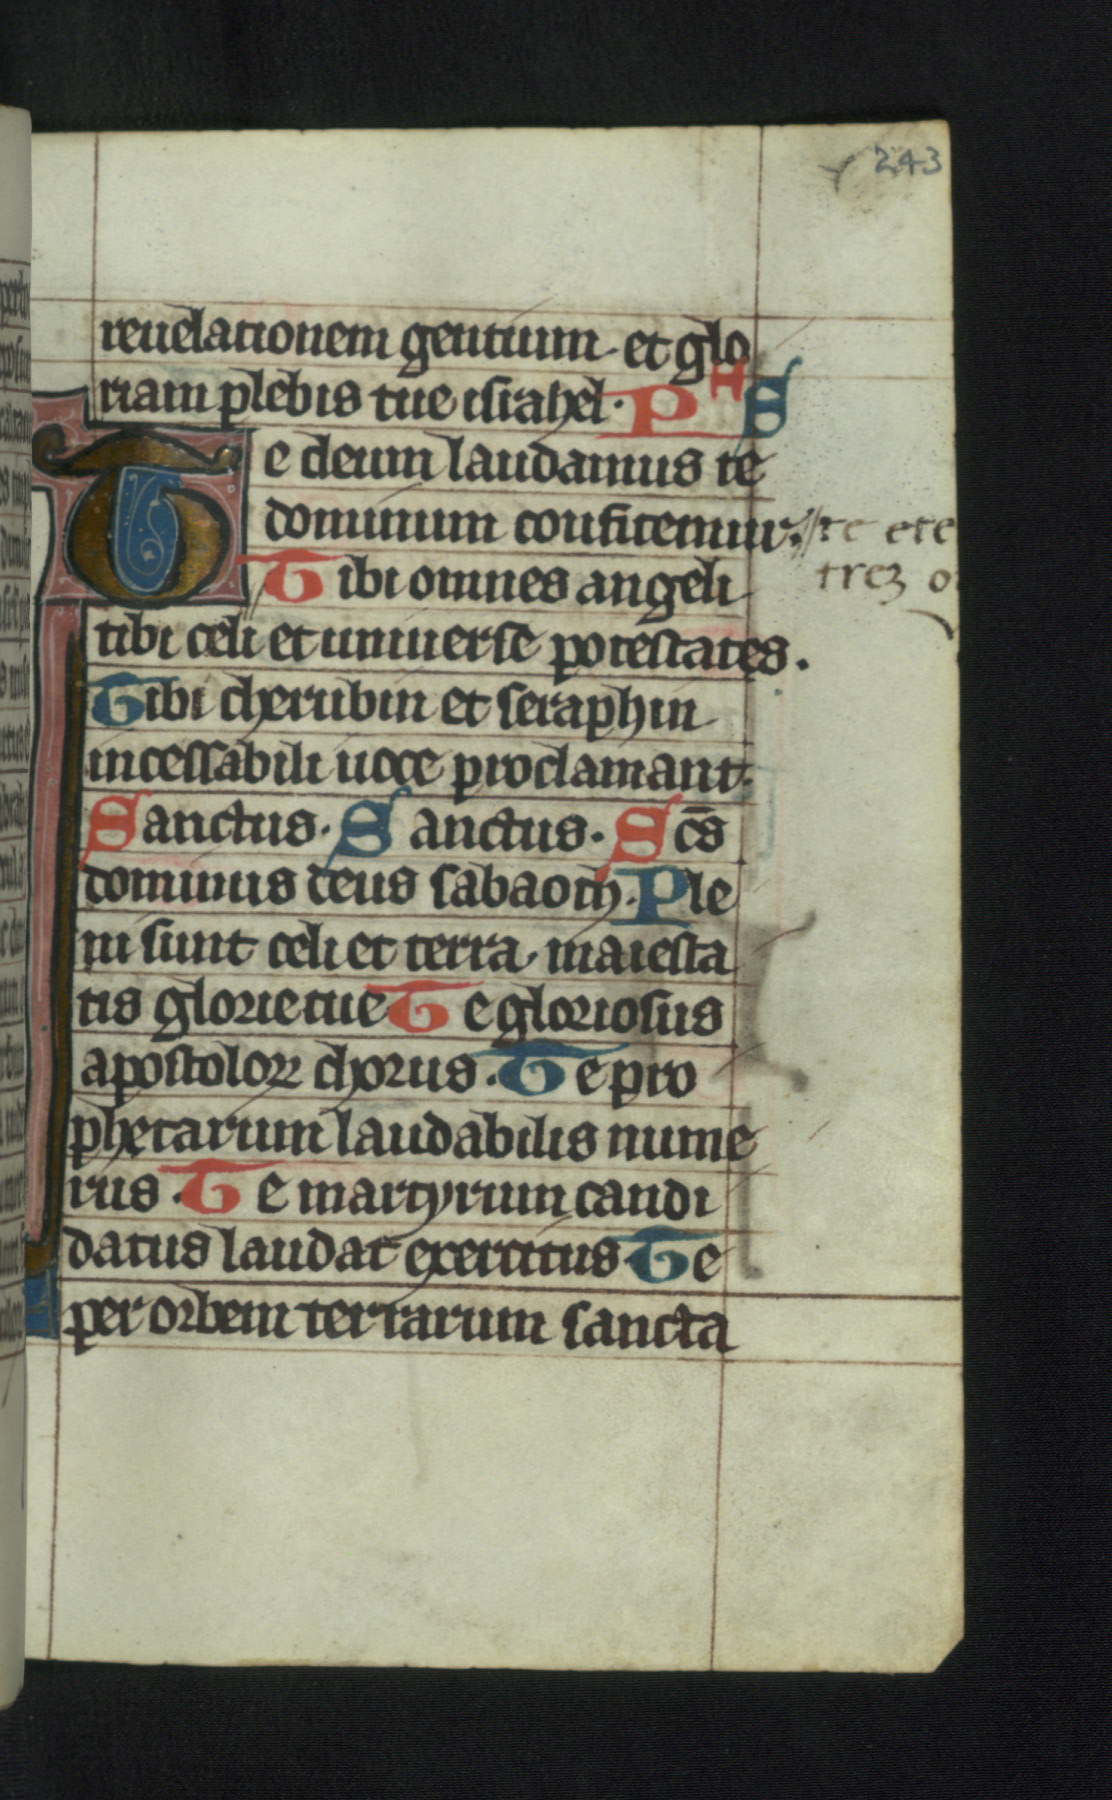 243
reuelationem gentium. et glo
riam plebis tue israhel. PHS
Te deum laudamus te
dominum confitemur. // te ete
Tibi omnes angeli trez o
tibi celi et uniuerse potestates.
Tibi cherubin et seraphin
incessabili uoce proclamant.
Sanctus. Sanctus. Scs̄
dominus deus sabaoth. Ple
ni sunt celi et terra. maiesta
tis glorie tue Te gloriosus
apostoloꝝ chorus. Te pro
phetarum laudabilis nume
rus. Te martyrum candi
datus laudat exercitus Te
per orbem terrarum sancta